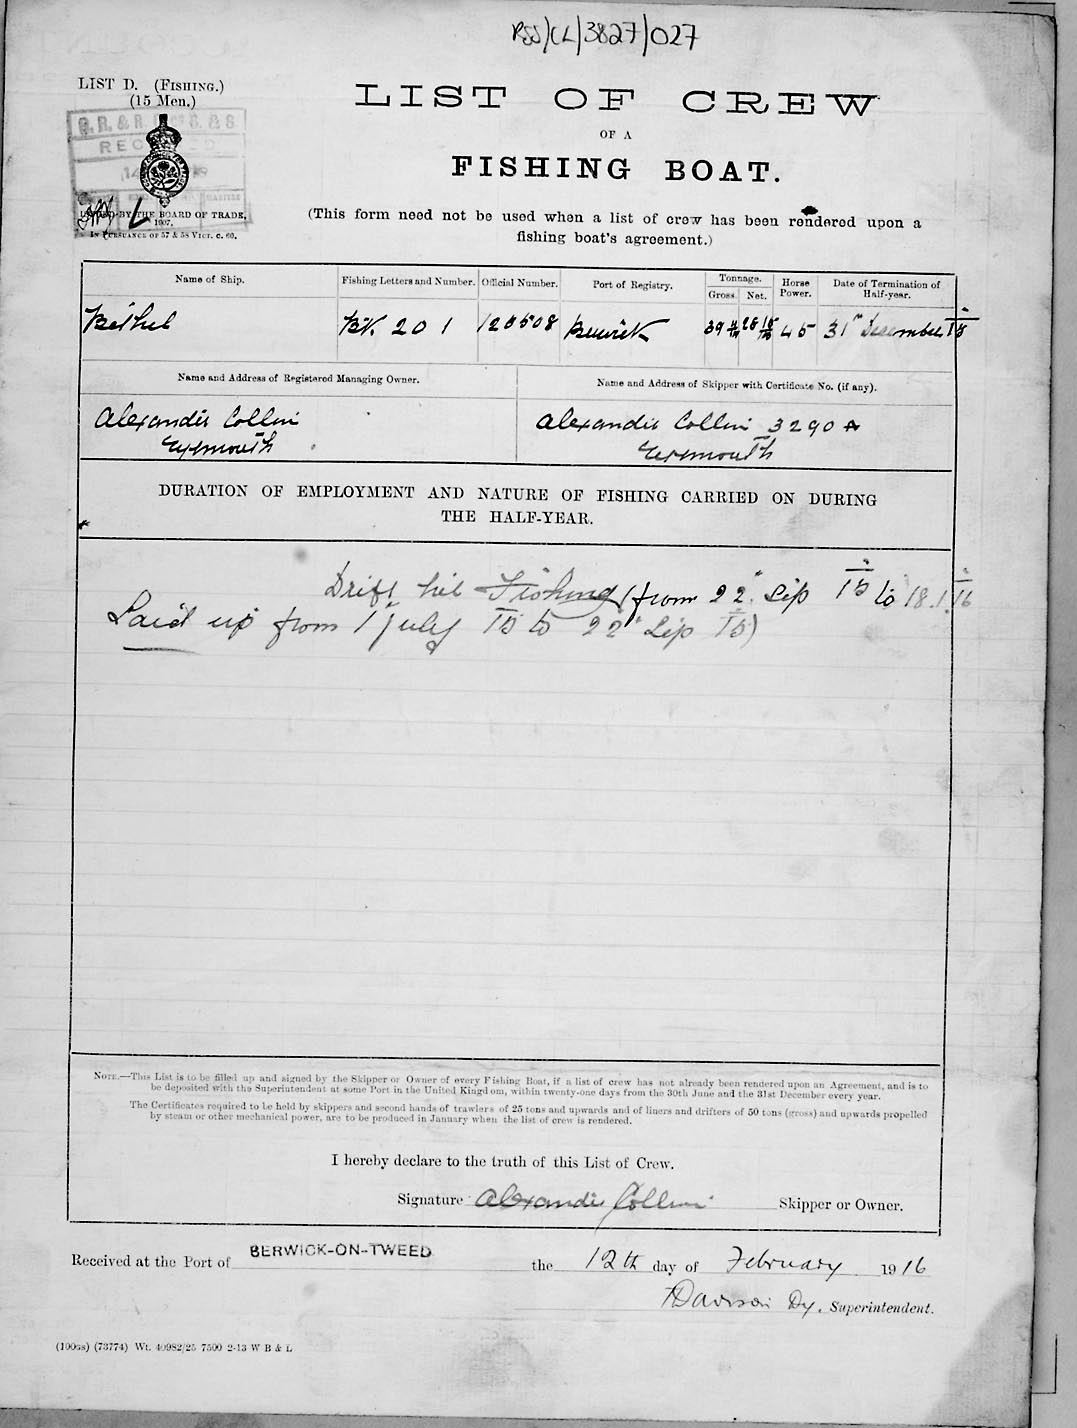 RSS/CL/3827/027
LIST D. (FISHING.)
(15 Men.)
LIST OF CREW
OF A
FISHING BOAT.
ISSUED BY THE BOARD OF TRADE,
1907.
IN PURSUANCE OF 57 & 58 VICT. C. 60.
(This form need not be used when a list of crew has been rendered upon a
fishing boat's agreement.)
Name of Ship. Fishing Letters and Number. Official Number. Port of Registry. Tonnage. Gross. Net. Horse Power. Date of Termination of Half-year.
Bethel BK. 201 120508 Berwick 39 45 31st December 15
Name and Address of Registered Managing Owner. Name and Address of Skipper with Certificate No. (if any).
Alexander Collin Alexander Collin 3290 A
Eyemouth Eyemouth
DURATION OF EMPLOYMENT AND NATURE OF FISHING CARRIED ON DURING
THE HALF-YEAR.
Drift net Fishing (from 22" Sep 15 to 18.1.16
Laid up from 1" July 15 to 22" Sep 15)
NOTE.—This List is to be filled up and signed by the Skipper or Owner of every Fishing Boat, if a list of crew has not already been rendered upon an Agreement, and is to
be deposited with the Superintendent at some Port in the United Kingdom, within twenty-one days from the 30th June and the 31st December every year.
The Certificates required to be held by skippers and second hands of trawlers of 25 tons and upwards and of liners and drifters of 50 tons (gross) and upwards propelled
by steam or other mechanical power, are to be produced in January when the list of crew is rendered.
I hereby declare to the truth of this List of Crew.
Signature Alexander Collin Skipper or Owner.
Received at the Port of BERWICK-ON-TWEED the 12th day of February 1916
Dy. Superintendent.
(100gs) (73774) Wt. 40982/25 7500 2-13 W B & L